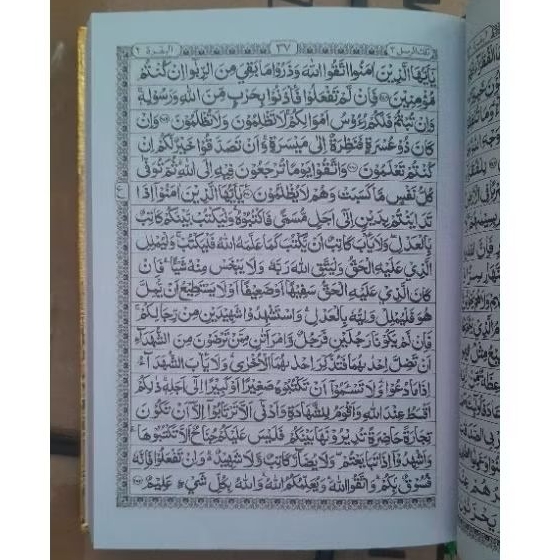 تلك الرسل ٣ ٣٧ البقرة ٢
يٰۤاَيُّهَا الَّذِيْنَ اٰمَنُوا اتَّقُوا اللّٰهَ وَذَرُوْا مَا بَقِيَ مِنَ الرِّبٰۤوا اِنْ كُنْتُمْ
مُّؤْمِنِيْنَ ﴿٢٧٨﴾ فَاِنْ لَّمْ تَفْعَلُوْا فَاْذَنُوْا بِحَرْبٍ مِّنَ اللّٰهِ وَرَسُوْلِهٖ ۚ
وَاِنْ تُبْتُمْ فَلَكُمْ رُءُوْسُ اَمْوَالِكُمْ ۚ لَا تَظْلِمُوْنَ وَلَا تُظْلَمُوْنَ ﴿٢٧٩﴾ وَاِنْ
كَانَ ذُوْ عُسْرَةٍ فَنَظِرَةٌ اِلٰى مَيْسَرَةٍ ؕ وَاَنْ تَصَدَّقُوْا خَيْرٌ لَّكُمْ اِنْ
كُنْتُمْ تَعْلَمُوْنَ ﴿٢٨٠﴾ وَاتَّقُوْا يَوْمًا تُرْجَعُوْنَ فِيْهِ اِلَى اللّٰهِ ثُمَّ تُوَفّٰى
كُلُّ نَفْسٍ مَّا كَسَبَتْ وَهُمْ لَا يُظْلَمُوْنَ ﴿٢٨١﴾ يٰۤاَيُّهَا الَّذِيْنَ اٰمَنُوْۤا اِذَا
تَدَايَنْتُمْ بِدَيْنٍ اِلٰۤى اَجَلٍ مُّسَمًّى فَاكْتُبُوْهُ ؕ وَلْيَكْتُبْ بَّيْنَكُمْ كَاتِبٌۢ
بِالْعَدْلِ ۪ وَلَا يَاْبَ كَاتِبٌ اَنْ يَّكْتُبَ كَمَا عَلَّمَهُ اللّٰهُ فَلْيَكْتُبْ ۚ وَلْيُمْلِلِ
الَّذِيْ عَلَيْهِ الْحَقُّ وَلْيَتَّقِ اللّٰهَ رَبَّهٗ وَلَا يَبْخَسْ مِنْهُ شَيْـًٔا ؕ فَاِنْ
كَانَ الَّذِيْ عَلَيْهِ الْحَقُّ سَفِيْهًا اَوْ ضَعِيْفًا اَوْ لَا يَسْتَطِيْعُ اَنْ يُّمِلَّ
هُوَ فَلْيُمْلِلْ وَلِيُّهٗ بِالْعَدْلِ ؕ وَاسْتَشْهِدُوْا شَهِيْدَيْنِ مِنْ رِّجَالِكُمْ ۚ
فَاِنْ لَّمْ يَكُوْنَا رَجُلَيْنِ فَرَجُلٌ وَّامْرَاَتٰنِ مِمَّنْ تَرْضَوْنَ مِنَ الشُّهَدَآءِ
اَنْ تَضِلَّ اِحْدٰىهُمَا فَتُذَكِّرَ اِحْدٰىهُمَا الْاُخْرٰى ؕ وَلَا يَاْبَ الشُّهَدَآءُ
اِذَا مَا دُعُوْا ؕ وَلَا تَسْـَٔمُوْۤا اَنْ تَكْتُبُوْهُ صَغِيْرًا اَوْ كَبِيْرًا اِلٰۤى اَجَلِهٖ ؕ ذٰلِكُمْ
اَقْسَطُ عِنْدَ اللّٰهِ وَاَقْوَمُ لِلشَّهَادَةِ وَاَدْنٰۤى اَلَّا تَرْتَابُوْۤا اِلَّاۤ اَنْ تَكُوْنَ
تِجَارَةً حَاضِرَةً تُدِيْرُوْنَهَا بَيْنَكُمْ فَلَيْسَ عَلَيْكُمْ جُنَاحٌ اَلَّا تَكْتُبُوْهَا ؕ
وَاَشْهِدُوْۤا اِذَا تَبَايَعْتُمْ ۪ وَلَا يُضَآرَّ كَاتِبٌ وَّلَا شَهِيْدٌ ؕ وَاِنْ تَفْعَلُوْا فَاِنَّهٗ
فُسُوْقٌۢ بِكُمْ ؕ وَاتَّقُوا اللّٰهَ ؕ وَيُعَلِّمُكُمُ اللّٰهُ ؕ وَاللّٰهُ بِكُلِّ شَيْءٍ عَلِيْمٌ ﴿٢٨٢﴾